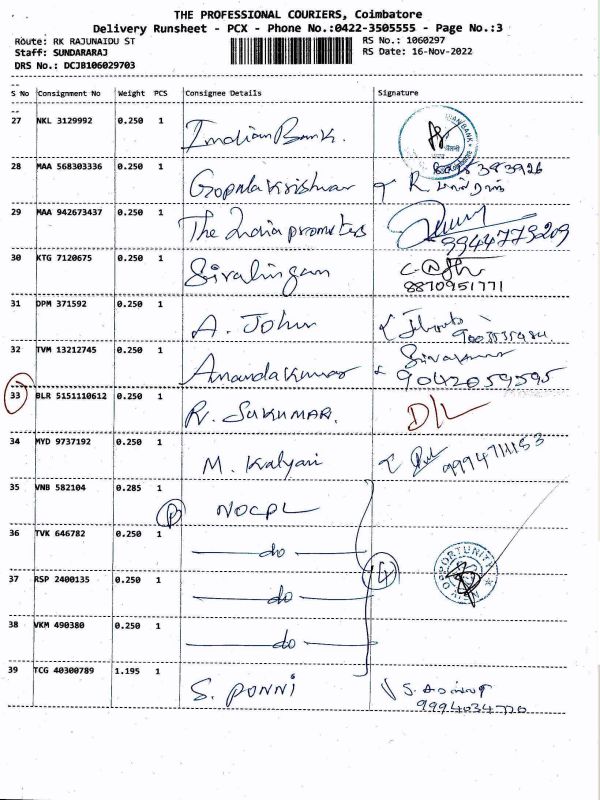 THE PROFESSIONAL COURIERS, Coimbatore
Delivery Runsheet - PCX - Phone No.:0422-3505555 - Page No.:3
Route: RK RAJUNAIDU ST RS No.: 1060297
Staff: SUNDARARAJ RS Date: 16-Nov-2022
DRS No.: DCJB106029703
S No Consignment No Weight PCS Consignee Details Signature
27 NKL 3129992 0.250 1 Indian Bank.
28 MAA 568303336 0.250 1 Gopalakrishnan
29 MAA 942673437 0.250 1 The India promoters 9944779209
30 KTG 7120675 0.250 1 Sivalingam
8870951771
31 DPM 371592 0.250 1 A. John
32 TVM 13212745 0.250 1 Anandakumar Sivakumar
9042059595
33 BLR 5151110612 0.250 1 R. SUKUMAR. D/L
34 MYD 9737192 0.250 1 M. Kalyani
35 VNB 582104 0.285 1 P NOCPL
36 TVK 646782 0.250 1 do
37 RSP 2400135 0.250 1 do 4
38 VKM 490380 0.250 1 do
39 TCG 40300789 1.195 1 S. PONNI